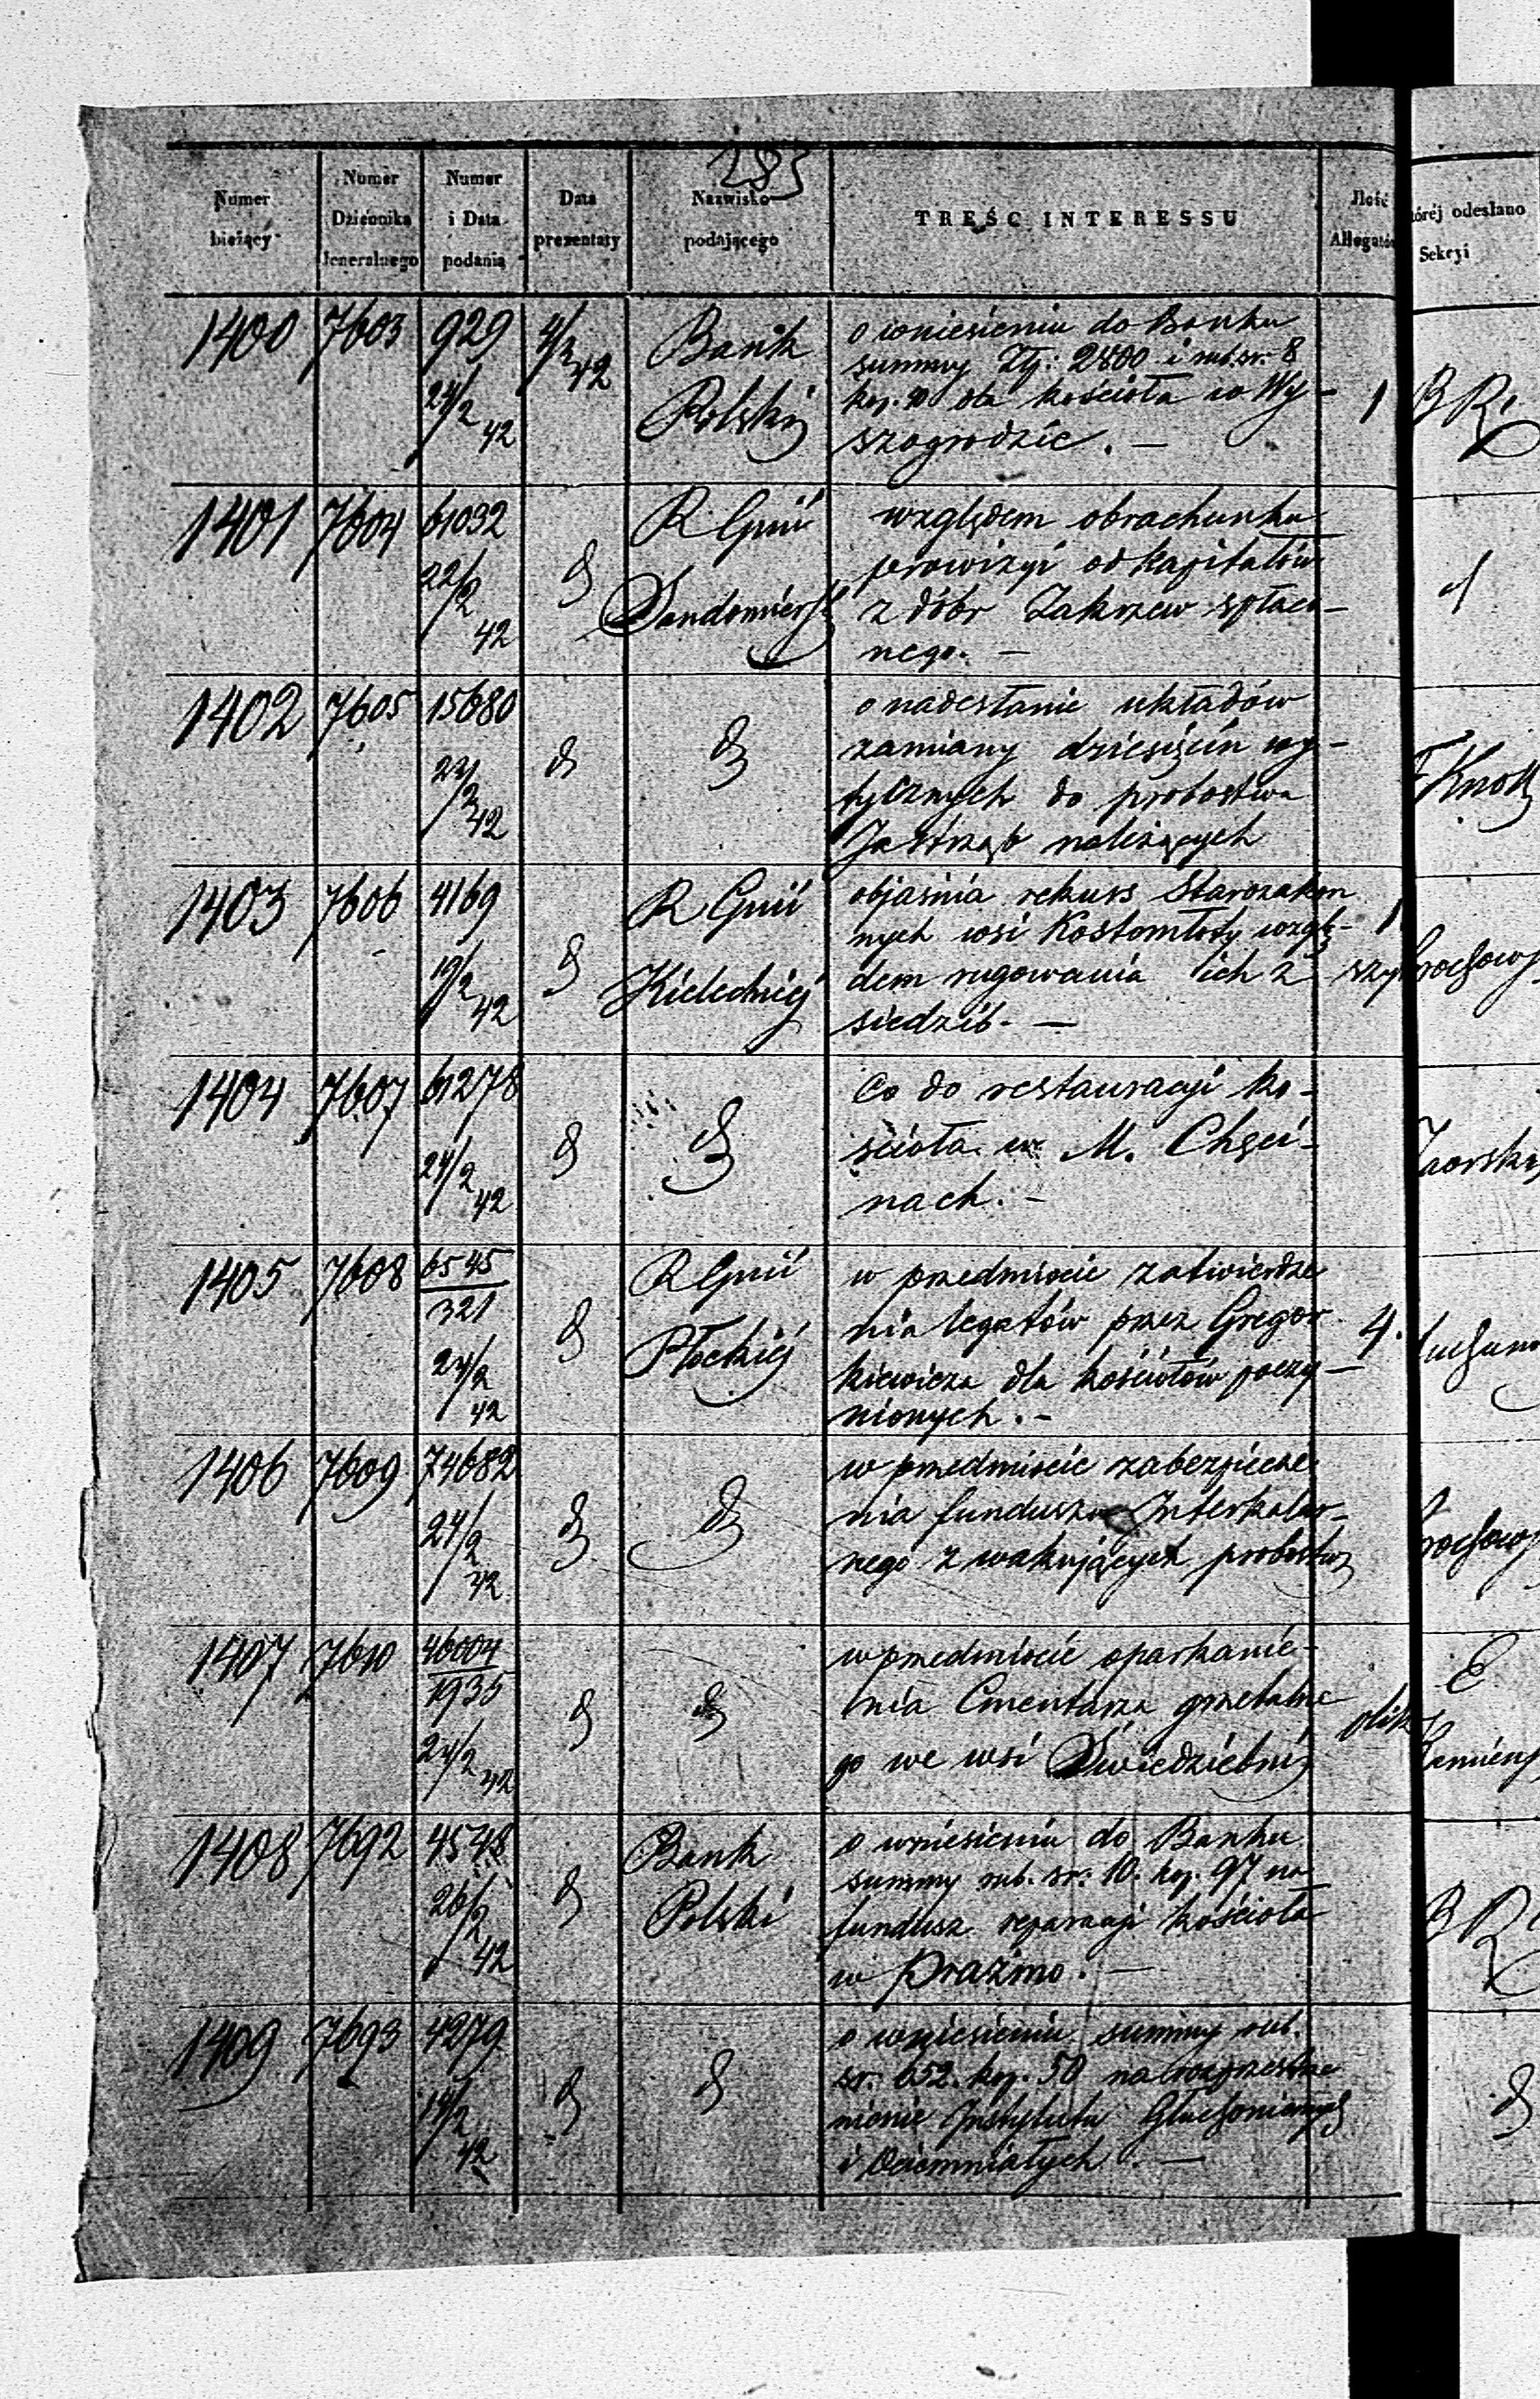 283
Numer bieżący
Numer Dziennika Jeneralnego
Numer i Data podania
Data prezentaty
Nazwisko podającego
TREŚC INTERESSU
Ilość Allegatów
której odesłano
Sekcyi
1400 7603 929 24/2 42 4/3 42 Bank Polski
o wniesieniu do Banku
summy Złp: 2800 i rub. sr. 8
kop. 90 dla kościoła w Wy-
szogrodzie. —
1
BR
1401 7604 61092 22/2 42 d R Gnii Sandomiersk
względem obrachunku
prowizyi od kapitałów
z dóbr Zakrzew spłaco-
nego. —
d
1402 7605 15680 24/2 42 d d
o nadesłanie układów
zamiany dziesięcin wy-
tycznych do probostwa
Jastrząb należących
Knoll
1403 7606 4169 19/2 42 d R Gnii Kieleckiej
objaśnia rekurs Starozakon
nych wsi Kostomłoty wzglę-
dem rugowania ich z
siedzib. —
1
szyt
1404 7607 61278 24/2 42 d d
Co do restauracyi ko-
ścioła w M. Chęci-
nach. —
Zaorski
1405 7608 6545/321 24/2 42 d R Gnii Płockiéj
w przedmiocie zatwierdze
nia legatów przez Gregor
kiewicza dla kościołów poczy-
nionych. —
4.
1406 7609 74682 24/2 42 d d
w przedmiocie zabezpiecze
nia funduszu Interkalar-
nego z wakujących probostw
1407 7610 46004/1935 24/2 42 d d
w przedmiocie oparkanie-
nia Cmentarza grzebalne
go we wsi Swiedziebni
plik
E
Kamieńs
1408 7692 4548 26/2 42 d Bank Polski
o wniesieniu do Banku
summy rub. sr: 10. kop. 97 na
fundusz reparacyi kościoła
w Prażmo. —
BR
1409 7693 4279 14/2 42 d d
o wniesieniu summy rub.
sr. 652. kop. 50 na rozprzestrze
nienie Instytutu Głuchoniemych
i Ociemniałych. —
d